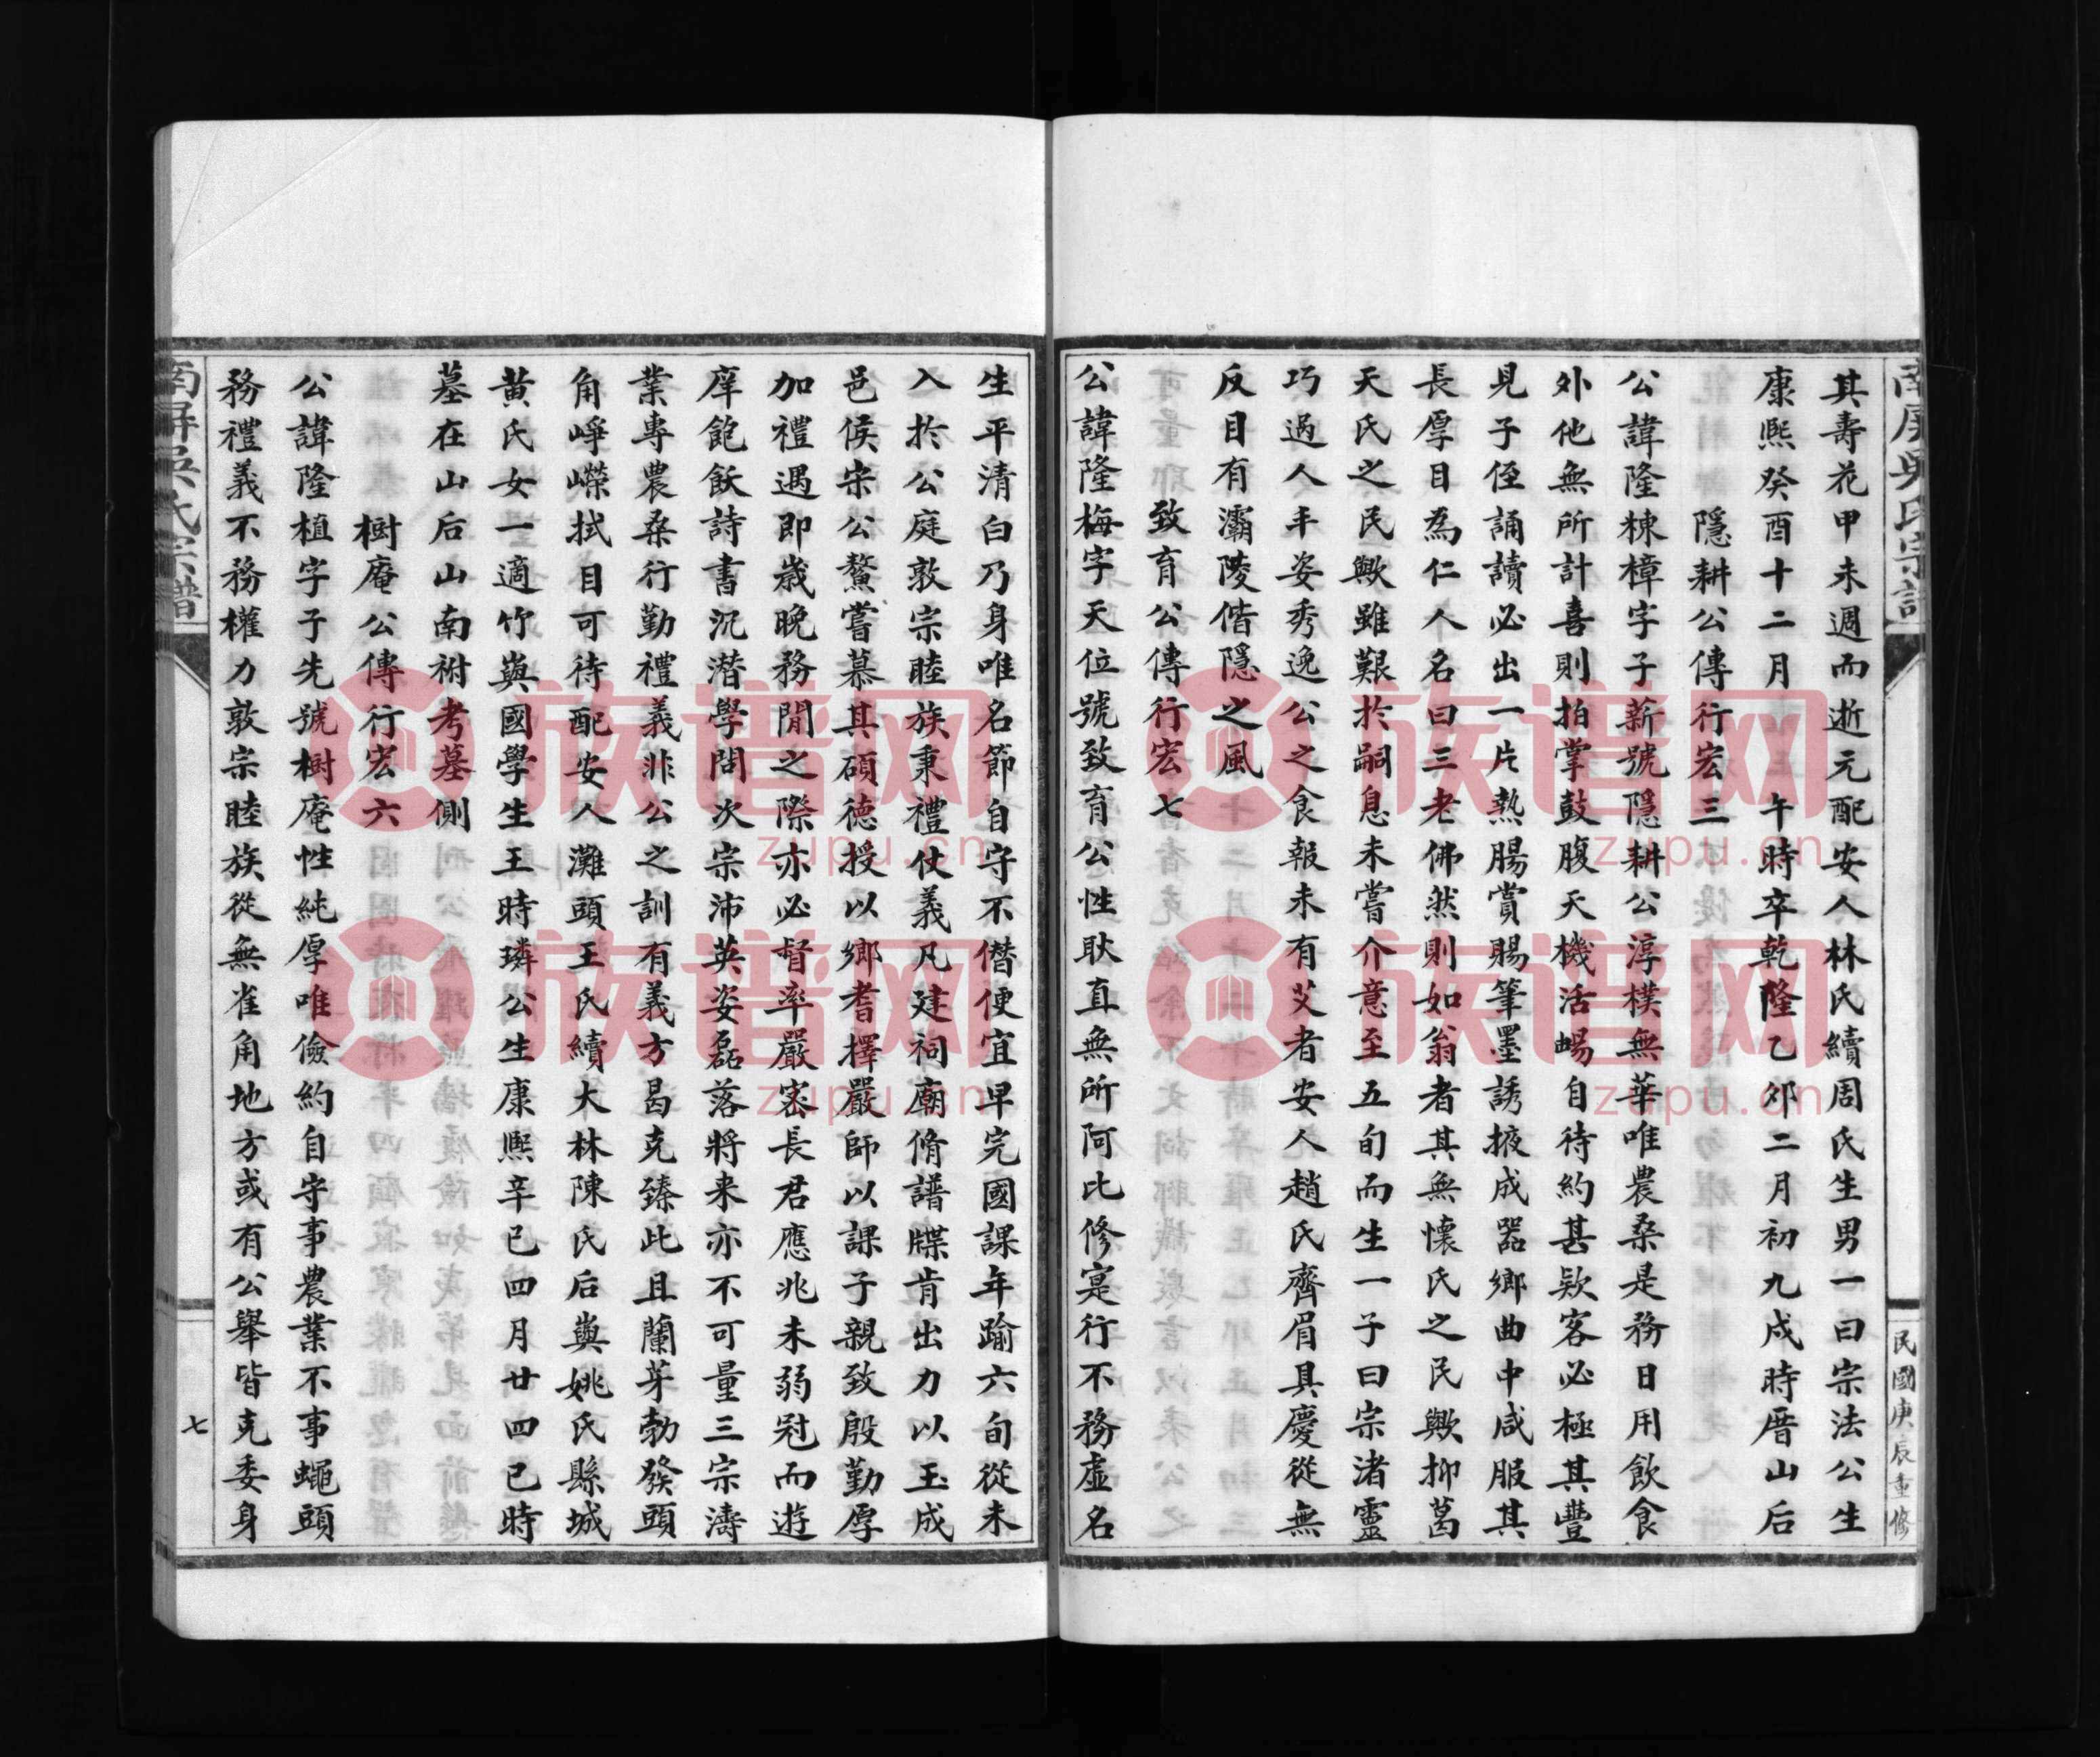 南屏吳氏宗譜
民國庚辰重修
其壽花甲未週而逝元配安人林氏續周氏生男一曰宗法公生
康熙癸酉十二月 午時卒乾隆乙邜二月初九戍時厝山后
隱耕公傳行宏三
公諱隆棟樟字子薪號隱耕公淳樸無華唯農桑是務日用飲食
外他無所計喜則拍掌鼓腹天機活暢自待約甚欵客必極其豐
見子侄誦讀必出一片熱腸賞賜筆墨誘掖成器鄉曲中咸服其
長厚目為仁人名曰三老佛然則如翁者其無懷氏之民歟抑葛
天氏之民歟雖艱於嗣息未嘗介意至五旬而生一子曰宗渚靈
巧過人丰姿秀逸公之食報未有艾者安人趙氏齊眉具慶從無
反目有灞陵偕隱之風
致育公傳行宏七
公諱隆梅字天位號致育公性耿直無所阿比修寔行不務虛名
生平清白乃身唯名節自守不僭便宜早完國課年踰六旬從未
入於公庭敦宗睦族秉禮仗義凡建祠廟脩譜牒肯出力以玉成
邑侯宋公鰲嘗慕其碩德授以鄉耆擇嚴師以課子親致殷勤厚
加禮遇即歲晚務閒之際亦必督率嚴密長君應兆未弱冠而遊
庠飽飫詩書沉潛學問次宗沛英姿磊落將来亦不可量三宗濤
業專農桑行勤禮義非公之訓有義方曷克臻此且蘭芽勃發頭
角崢嶸拭目可待配安人灘頭王氏續大林陳氏后與姚氏縣城
黃氏女一適竹與國學生王時璘公生康熙辛巳四月廿四巳時
墓在山后山南祔考墓側
樹庵公傳行宏六
公諱隆植字子先號樹庵性純厚唯儉約自守事農業不事蠅頭
務禮義不務權力敦宗睦族從無雀角地方或有公舉皆克委身
南屏吳氏宗譜
七
族谱网
zupu.cn
族谱网
zupu.cn
族谱网
zupu.cn
族谱网
zupu.cn